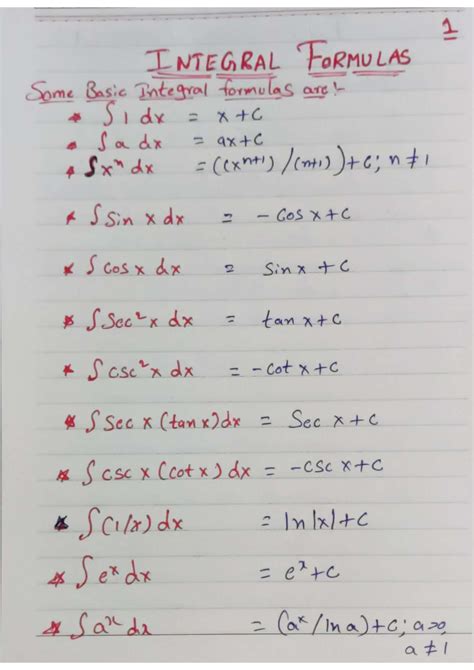 1
INTEGRAL FORMULAS
Some Basic Integral formulas are:-
* ∫ 1 dx = x + C
* ∫ a dx = ax + C
* ∫ xⁿ dx = ((xⁿ⁺¹) / (n+1)) + C ; n ≠ 1
* ∫ Sin x dx = - Cos x + C
* ∫ Cos x dx = Sin x + C
* ∫ Sec² x dx = tan x + C
* ∫ csc² x dx = - cot x + C
* ∫ Sec x (tan x) dx = Sec x + C
* ∫ csc x (cot x) dx = - csc x + C
* ∫ (1/x) dx = ln |x| + C
* ∫ eˣ dx = eˣ + C
* ∫ aˣ dx = (aˣ / ln a) + C ; a>0,
a ≠ 1